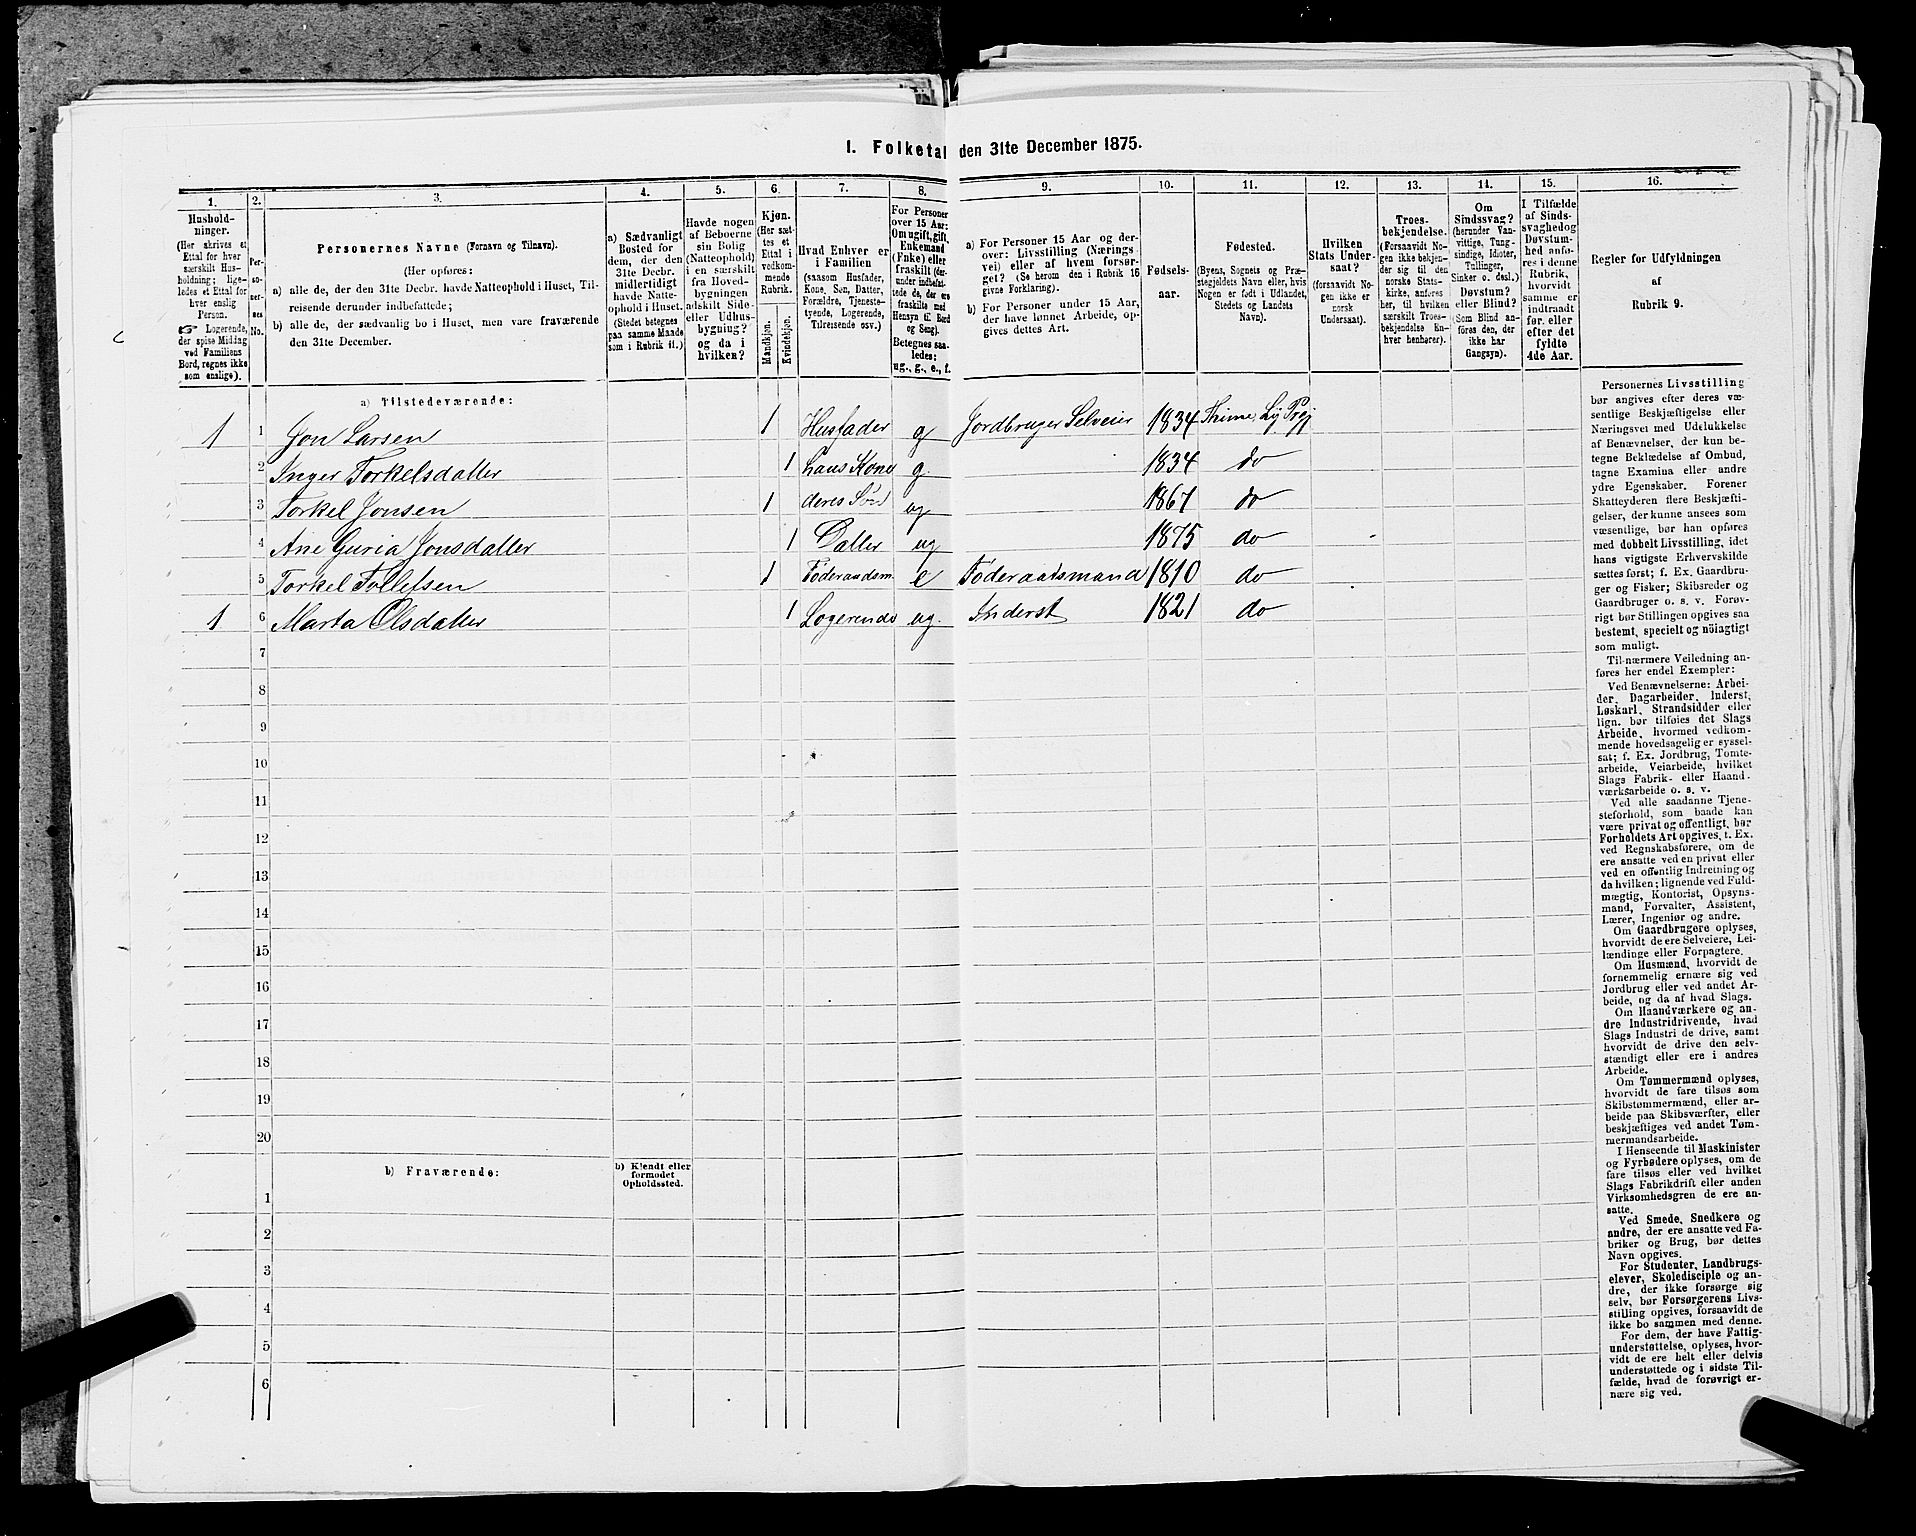 I. Folketal den 31te December 1875.
1. 2. 3. 4. 5. 6. 7. 8. 9. 10. 11. 12. 13. 14. 15. 16.
Hushold-
ninger.
(Her skrives et
Ettal for hver
særskilt Hus-
holdning; lige-
ledes et Ettal for
hver enslig
Person.
☞ Logerende,
der spise Middag
ved Familiens
Bord, regnes ikke
som enslige).
Per-
so-
ner-
nes
No.
Personernes Navne (Fornavn og Tilnavn).
(Her opføres:
a) alle de, der den 31te Decbr. havde Natteophold i Huset, Til-
reisende derunder indbefattede;
b) alle de, der sædvanlig bo i Huset, men vare fraværende
den 31te December.
a) Sædvanligt
Bosted for
dem, der den
31te Decbr.
midlertidigt
havde Natte-
ophold i Huset.
(Stedet betegnes
paa samme Maade
som i Rubrik 11.)
Havde nogen
af Beboerne
sin Bolig
(Natteophold)
i en særskilt
fra Hoved-
bygningen
adskilt Side-
eller Udhus-
bygning?
og da i
hvilken?
Kjøn.
(Her sæt-
tes et
Ettal i
vedkom-
mende
Rubrik.
Mandkjøn.
Kvindekjøn.
Hvad Enhver er
i Familien
(saasom Husfader,
Kone, Søn, Datter,
Forældre, Tjeneste-
tyende, Logerende,
Tilreisende osv.)
For Personer
over 15 Aar:
Om ugift, gift,
Enkemand
(Enke) eller
fraskilt (der-
under indbefat-
tede de, der ere
fraskilte med
Hensyn til Bord
og Seng).
Betegnes saa-
ledes:
ug., g., e., f.
a) For Personer 15 Aar og der-
over: Livsstilling (Nærings-
vei) eller af hvem forsør-
get? (Se herom den i Rubrik 16
givne Forklaring).
b) For Personer under 15 Aar,
der have lønnet Arbeide, op-
gives dettes Art.
Fødsels-
aar.
Fødested.
(Byens, Sognets og Præ-
stegjeldets Navn eller, hvis
Nogen er født i Udlandet,
Stedets og Landets
Navn).
Hvilken
Stats Under-
saat?
(forsaavidt No-
gen ikke er
norsk
Undersaat).
Troes-
bekjendelse.
(Forsaavidt No-
gen ikke bekjen-
der sig til den
norske Stats-
kirke, anføres
her, til hvilken
særskilt Troes-
bekjendelse En-
hver henhører).
Om
Sindssvag?
(herunder Van-
vittige, Tung-
sindige, Idioter,
Tullinger,
Sinker o. desl.)
Døvstum?
eller Blind?
(Som Blind an-
føres den, der
ikke har
Gangsyn).
I Tilfælde
af Sinds-
svaghed og
Døvstum-
hed anfø-
res i denne
Rubrik,
hvorvidt
samme er
indtraadt
før eller
efter det
fyldte
4de Aar.
Regler for Udfyldningen
af
Rubrik 9.
a) Tilstedeværende:
1 1 Jon Larsen 1 Husfader g Jordbruger Selveier 1834 Thime, Ly Prgj
2 Inger Torkelsdatter 1 hans Kone g. 1834 do
3 Torkel Jonsen 1 deres Søn ug 1867 do
4 Ane Guria Jonsdatter 1 Datter ug 1875 do
5 Torkel Tollefsen 1 Føderaadsm. e Føderaadsmand 1810 do
1 6 Marta Olsdatter 1 Logerende ug. Inderst 1821 do
7
8
9
10
11
12
13
14
15
16
17
18
19
20
b) Fraværende:
b) Kjendt eller
formodet
Opholdssted.
1
2
3
4
5
6
Personernes Livsstilling
bør angives efter deres væ-
sentlige Beskjæftigelse eller
Næringsvei med Udelukkelse
af Benævnelser, der kun be-
tegne Beklædelse af Ombud,
tagne Examina eller andre
ydre Egenskaber. Forener
Skatteyderen flere Beskjæfti-
gelser, der kunne ansees som
væsentlige, bør han opføres
med dobbelt Livsstilling, idet
hans vigtigste Erhvervskilde
sættes først; f. Ex. Gaardbru-
ger og Fisker; Skibsreder og
Gaardbruger o. s. v. Forøv-
rigt bør Stillingen opgives saa
bestemt, specielt og nöiagtigt
som muligt.
Til nærmere Veiledning an-
føres her endel Exempler:
Ved Benævnelserne: Arbei-
der, Dagarbeider, Inderst,
Løskarl, Strandsidder eller
lign. bør tilføies det Slags
Arbeide, hvormed vedkom-
mende hovedsagelig er syssel-
sat; f. Ex. Jordbrug, Tomte-
arbeide, Veiarbeide, hvilket
Slags Fabrik- eller Haand-
værksarbeide o. s. v.
Ved alle saadanne Tjene-
steforhold, som baade kan
være privat og offentligt, bør
Forholdets Art opgives, t. Ex.
ved Regnskabsførere, om de
ere ansatte ved en privat eller
ved en offentlig Indretning og
da hvilken; lignende ved Fuld-
mægtig, Kontorist, Opsyns-
mand, Forvalter, Assistent,
Lærer, Ingeniør og andre.
Om Gaardbrugere oplyses,
hvorvidt de ere Selveiere, Lei-
lændinge eller Forpagtere.
Om Husmænd, hvorvidt de
fornemmelig ernære sig ved
Jordbrug eller ved andet Ar-
beide, og da af hvad Slags.
Om Haandværkere og an-
dre Industridrivende, hvad
Slags Industri de drive, samt
hvorvidt de drive den selv-
stændigt eller ere i andres
Arbeide.
Om Tømmermænd oplyses,
hvorvidt de fare tilsøs som
Skibstømmermænd, eller ar-
beide paa Skibsværfter, eller
beskjæftiges ved andet Tøm-
mermandsarbeide.
I Henseende til Maskinister
og Fyrbødere oplyses, om de
fare tilsøs eller ved hvilket
Slags Fabrikdrift eller anden
Virksomhedsgren de ere an-
satte.
Ved Smede, Snedkere og
andre, der ere ansatte ved Fa-
briker og Brug, bør dettes
Navn opgives.
For Studenter, Landbrugs-
elever, Skoledisciple og an-
dre, der ikke forsørge sig
selv, bør Forsørgerens Livs-
stilling opgives, forsaavidt de
ikke bo sammen med denne.
For dem, der have Fattig-
understøttelse, oplyses, hvor-
vidt de ere helt eller delvis
understøttede og i sidste Til-
fælde, hvad de forøvrigt er-
nære sig ved.